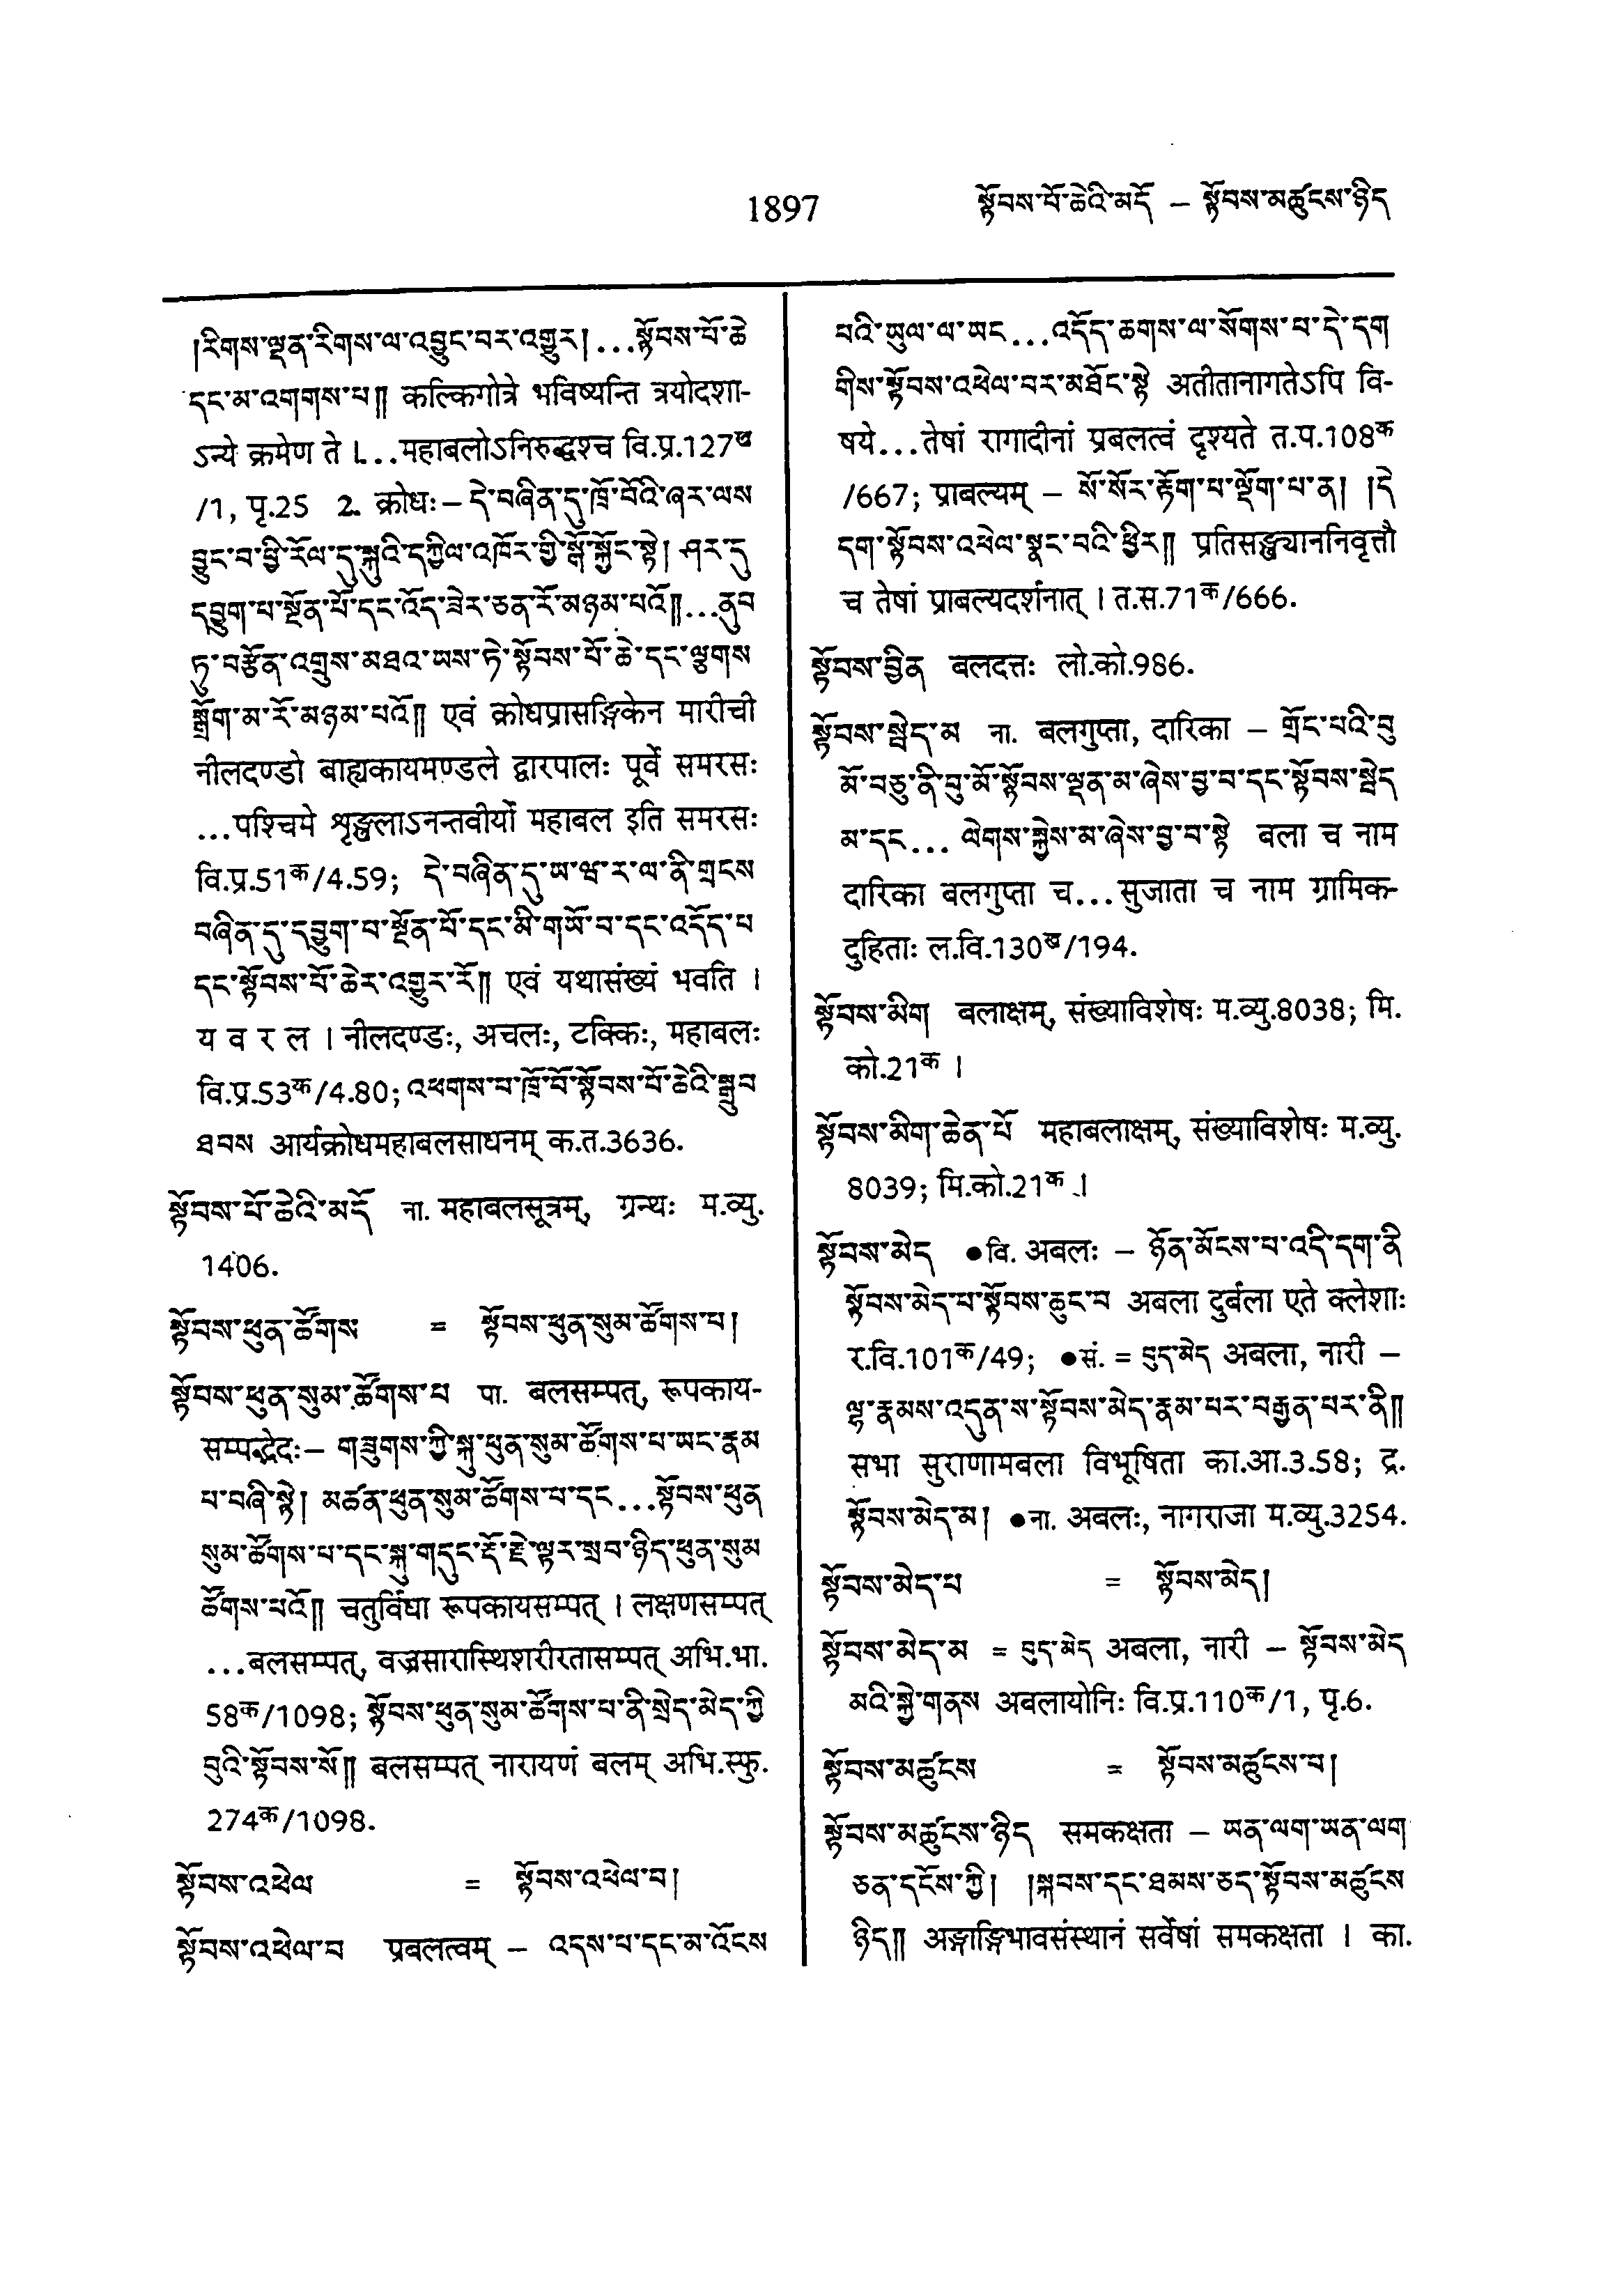 1897 སྟོབས་པོ་ཆེའི་མདོ – སྟོབས་མཚུངས་ཉིད
།རིགས་ལྡན་རིགས་ལ་འབྱུང་བར་འགྱུར། ...སྟོབས་པོ་ཆེ
དང་མ་འགགས་པ།། कल्किगोत्रे भविष्यन्ति त्रयोदशा-
ऽन्ये क्रमेण ते ।...महाबलोऽनिरुद्धश्च वि.प्र.127ख
/1, पृ.25 2. क्रोधः – དེ་བཞིན་དུ་ཁྲོ་བོའི་ཞར་ལས
བྱུང་བ་ཕྱི་རོལ་དུ་སྐུའི་དཀྱིལ་འཁོར་གྱི་སྒོ་སྐྱོང་སྟེ། ཤར་དུ
དབྱུག་པ་སྔོན་པོ་དང་འོད་ཟེར་ཅན་རོ་མཉམ་པའོ།།...ནུབ
ཏུ་བརྩོན་འགྲུས་མཐའ་ཡས་ཏེ་སྟོབས་པོ་ཆེ་དང་ལྕགས
སྒྲོག་མ་རོ་མཉམ་པའོ།། एवं क्रोधप्रासङ्गिकेन मारीची
नीलदण्डो बाह्यकायमण्डले द्वारपालः पूर्वे समरसः
...पश्चिमे शृङ्खलाऽनन्तवीर्यो महाबल इति समरसः
वि.प्र.51क/4.59; དེ་བཞིན་དུ་ཡ་ཝ་ར་ལ་ནི་གྲངས
བཞིན་དུ་དབྱུག་པ་སྔོན་པོ་དང་མི་གཡོ་བ་དང་འདོད་པ
དང་སྟོབས་པོ་ཆེར་འགྱུར་རོ།། एवं यथासंख्यं भवति ।
य व र ल । नीलदण्डः, अचलः, टक्किः, महाबलः
वि.प्र.53क/4.80; འཕགས་པ་ཁྲོ་བོ་སྟོབས་པོ་ཆེའི་སྒྲུབ
ཐབས आर्यक्रोधमहाबलसाधनम् क.त.3636.
སྟོབས་པོ་ཆེའི་མདོ ना. महाबलसूत्रम्, ग्रन्थः म.व्यु.
1406.
སྟོབས་ཕུན་ཚོགས = སྟོབས་ཕུན་སུམ་ཚོགས་པ།
སྟོབས་ཕུན་སུམ་ཚོགས་པ पा. बलसम्पत्, रूपकाय-
सम्पद्भेदः – གཟུགས་ཀྱི་སྐུ་ཕུན་སུམ་ཚོགས་པ་ཡང་རྣམ
པ་བཞི་སྟེ། མཚན་ཕུན་སུམ་ཚོགས་པ་དང...སྟོབས་ཕུན
སུམ་ཚོགས་པ་དང་སྐུ་གདུང་རྡོ་རྗེ་ལྟར་སྲབ་ཉིད་ཕུན་སུམ
ཚོགས་པའོ།། चतुर्विधा रूपकायसम्पत् । लक्षणसम्पत्
...बलसम्पत्, वज्रसारास्थिशरीरतासम्पत् अभि.भा.
58क/1098; སྟོབས་ཕུན་སུམ་ཚོགས་པ་ནི་སྲེད་མེད་ཀྱི
བུའི་སྟོབས་སོ།། बलसम्पत् नारायणं बलम् अभि.स्फु.
274क/1098.
སྟོབས་འཕེལ = སྟོབས་འཕེལ་བ།
སྟོབས་འཕེལ་བ प्रबलत्वम् – འདས་པ་དང་མ་འོངས
པའི་ཡུལ་ལ་ཡང...འདོད་ཆགས་ལ་སོགས་པ་དེ་དག
གིས་སྟོབས་འཕེལ་བར་མཐོང་སྟེ अतीतानागतेऽपि वि-
षये...तेषां रागादीनां प्रबलत्वं दृश्यते त.प.108क
/667; प्राबल्यम् – སོ་སོར་རྟོག་པ་ལྡོག་པ་ན། །དེ
དག་སྟོབས་འཕེལ་སྣང་བའི་ཕྱིར།། प्रतिसङ्ख्याननिवृत्तौ
च तेषां प्राबल्यदर्शनात् । त.स.71क/666.
སྟོབས་བྱིན बलदत्तः लो.को.986.
སྟོབས་སྦེད་མ ना. बलगुप्ता, दारिका – གྲོང་པའི་བུ
མོ་བཅུ་ནི་བུ་མོ་སྟོབས་ལྡན་མ་ཞེས་བྱ་བ་དང་སྟོབས་སྦེད
མ་དང... ལེགས་སྐྱེས་མ་ཞེས་བྱ་བ་སྟེ बला च नाम
दारिका बलगुप्ता च...सुजाता च नाम ग्रामिक-
दुहिताः ल.वि.130ख/194.
སྟོབས་མིག बलाक्षम्, संख्याविशेषः म.व्यु.8038; मि.
को.21क ।
སྟོབས་མིག་ཆེན་པོ महाबलाक्षम्, संख्याविशेषः म.व्यु.
8039; मि.को.21क ।
སྟོབས་མེད ●वि. अबलः – ཉོན་མོངས་པ་འདི་དག་ནི
སྟོབས་མེད་པ་སྟོབས་ཆུང་བ अबला दुर्बला एते क्लेशाः
र.वि.101क/49; ●सं. = བུད་མེད अबला, नारी –
ལྷ་རྣམས་འདུན་ས་སྟོབས་མེད་རྣམ་པར་བརྒྱན་པར་ནི།།
सभा सुराणामबला विभूषिता का.आ.3.58; द्र.
སྟོབས་མེད་མ། ●ना. अबलः, नागराजा म.व्यु.3254.
སྟོབས་མེད་པ = སྟོབས་མེད།
སྟོབས་མེད་མ = བུད་མེད अबला, नारी – སྟོབས་མེད
མའི་སྐྱེ་གནས अबलायोनिः वि.प्र.110क/1, पृ.6.
སྟོབས་མཚུངས = སྟོབས་མཚུངས་པ།
སྟོབས་མཚུངས་ཉིད समकक्षता – ཡན་ལག་ཡན་ལག
ཅན་དངོས་ཀྱི། །སྐབས་དང་ཐམས་ཅད་སྟོབས་མཚུངས
ཉིད།། अङ्गाङ्गिभावसंस्थानं सर्वेषां समकक्षता । का.